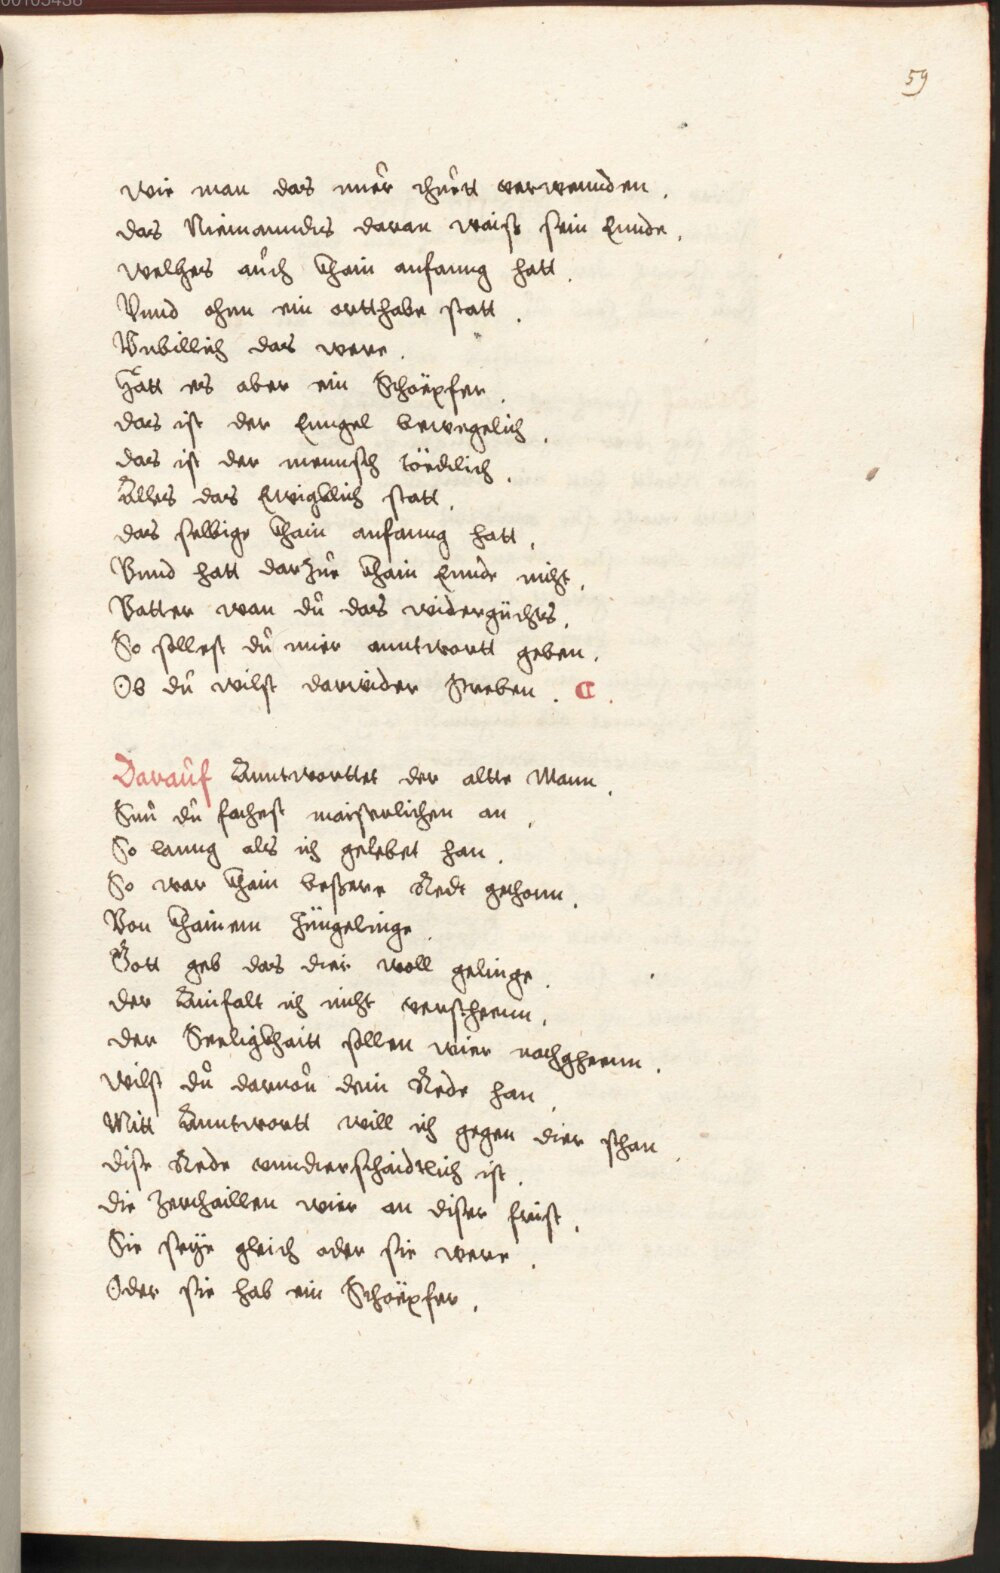 59
wie man das mŭr thuet verwennden.
das Niemanndts daran waiß sein Ennde.
welhes aŭch khain anfanng hatt.
Vnnd ohen ein ortthabe statt.
Vnbillich das were.
Hatt es aber ein Schoëpfer.
das ist der Enngel bewegelich.
das ist der mennsch töedtlich.
Alles das Ewigkhlich statt.
das selbige khain anfanng hatt.
Vnnd hatt darzŭe khain Ennde nicht.
Vatter wan dŭ das widergüchts.
So sollest dŭ mier anntwortt geben.
Ob dŭ wilst darwider streben.
Daraŭf Anntworttet der altte Mann.
Snŭ dŭ fachest maisterlichen an.
So lanng als ich gelebet han.
So war khain bessere Redt gethonn.
Von khainem Jüngelinge.
Gott geb das dier woll gelinge.
der Ainfalt ich nicht versteenn.
der Seeligkhaitt sollen wier nachgheenn.
wilst dŭ darnoŭ dein Rede han.
Mitt Anntwortt will ich gegen dier sthan.
dise Rede vnndterschaidtlich ist.
die zerthaillen wier an diser frist.
Sie seÿe gleich oder sie were.
Oder sie hab ein Schoëpfer.